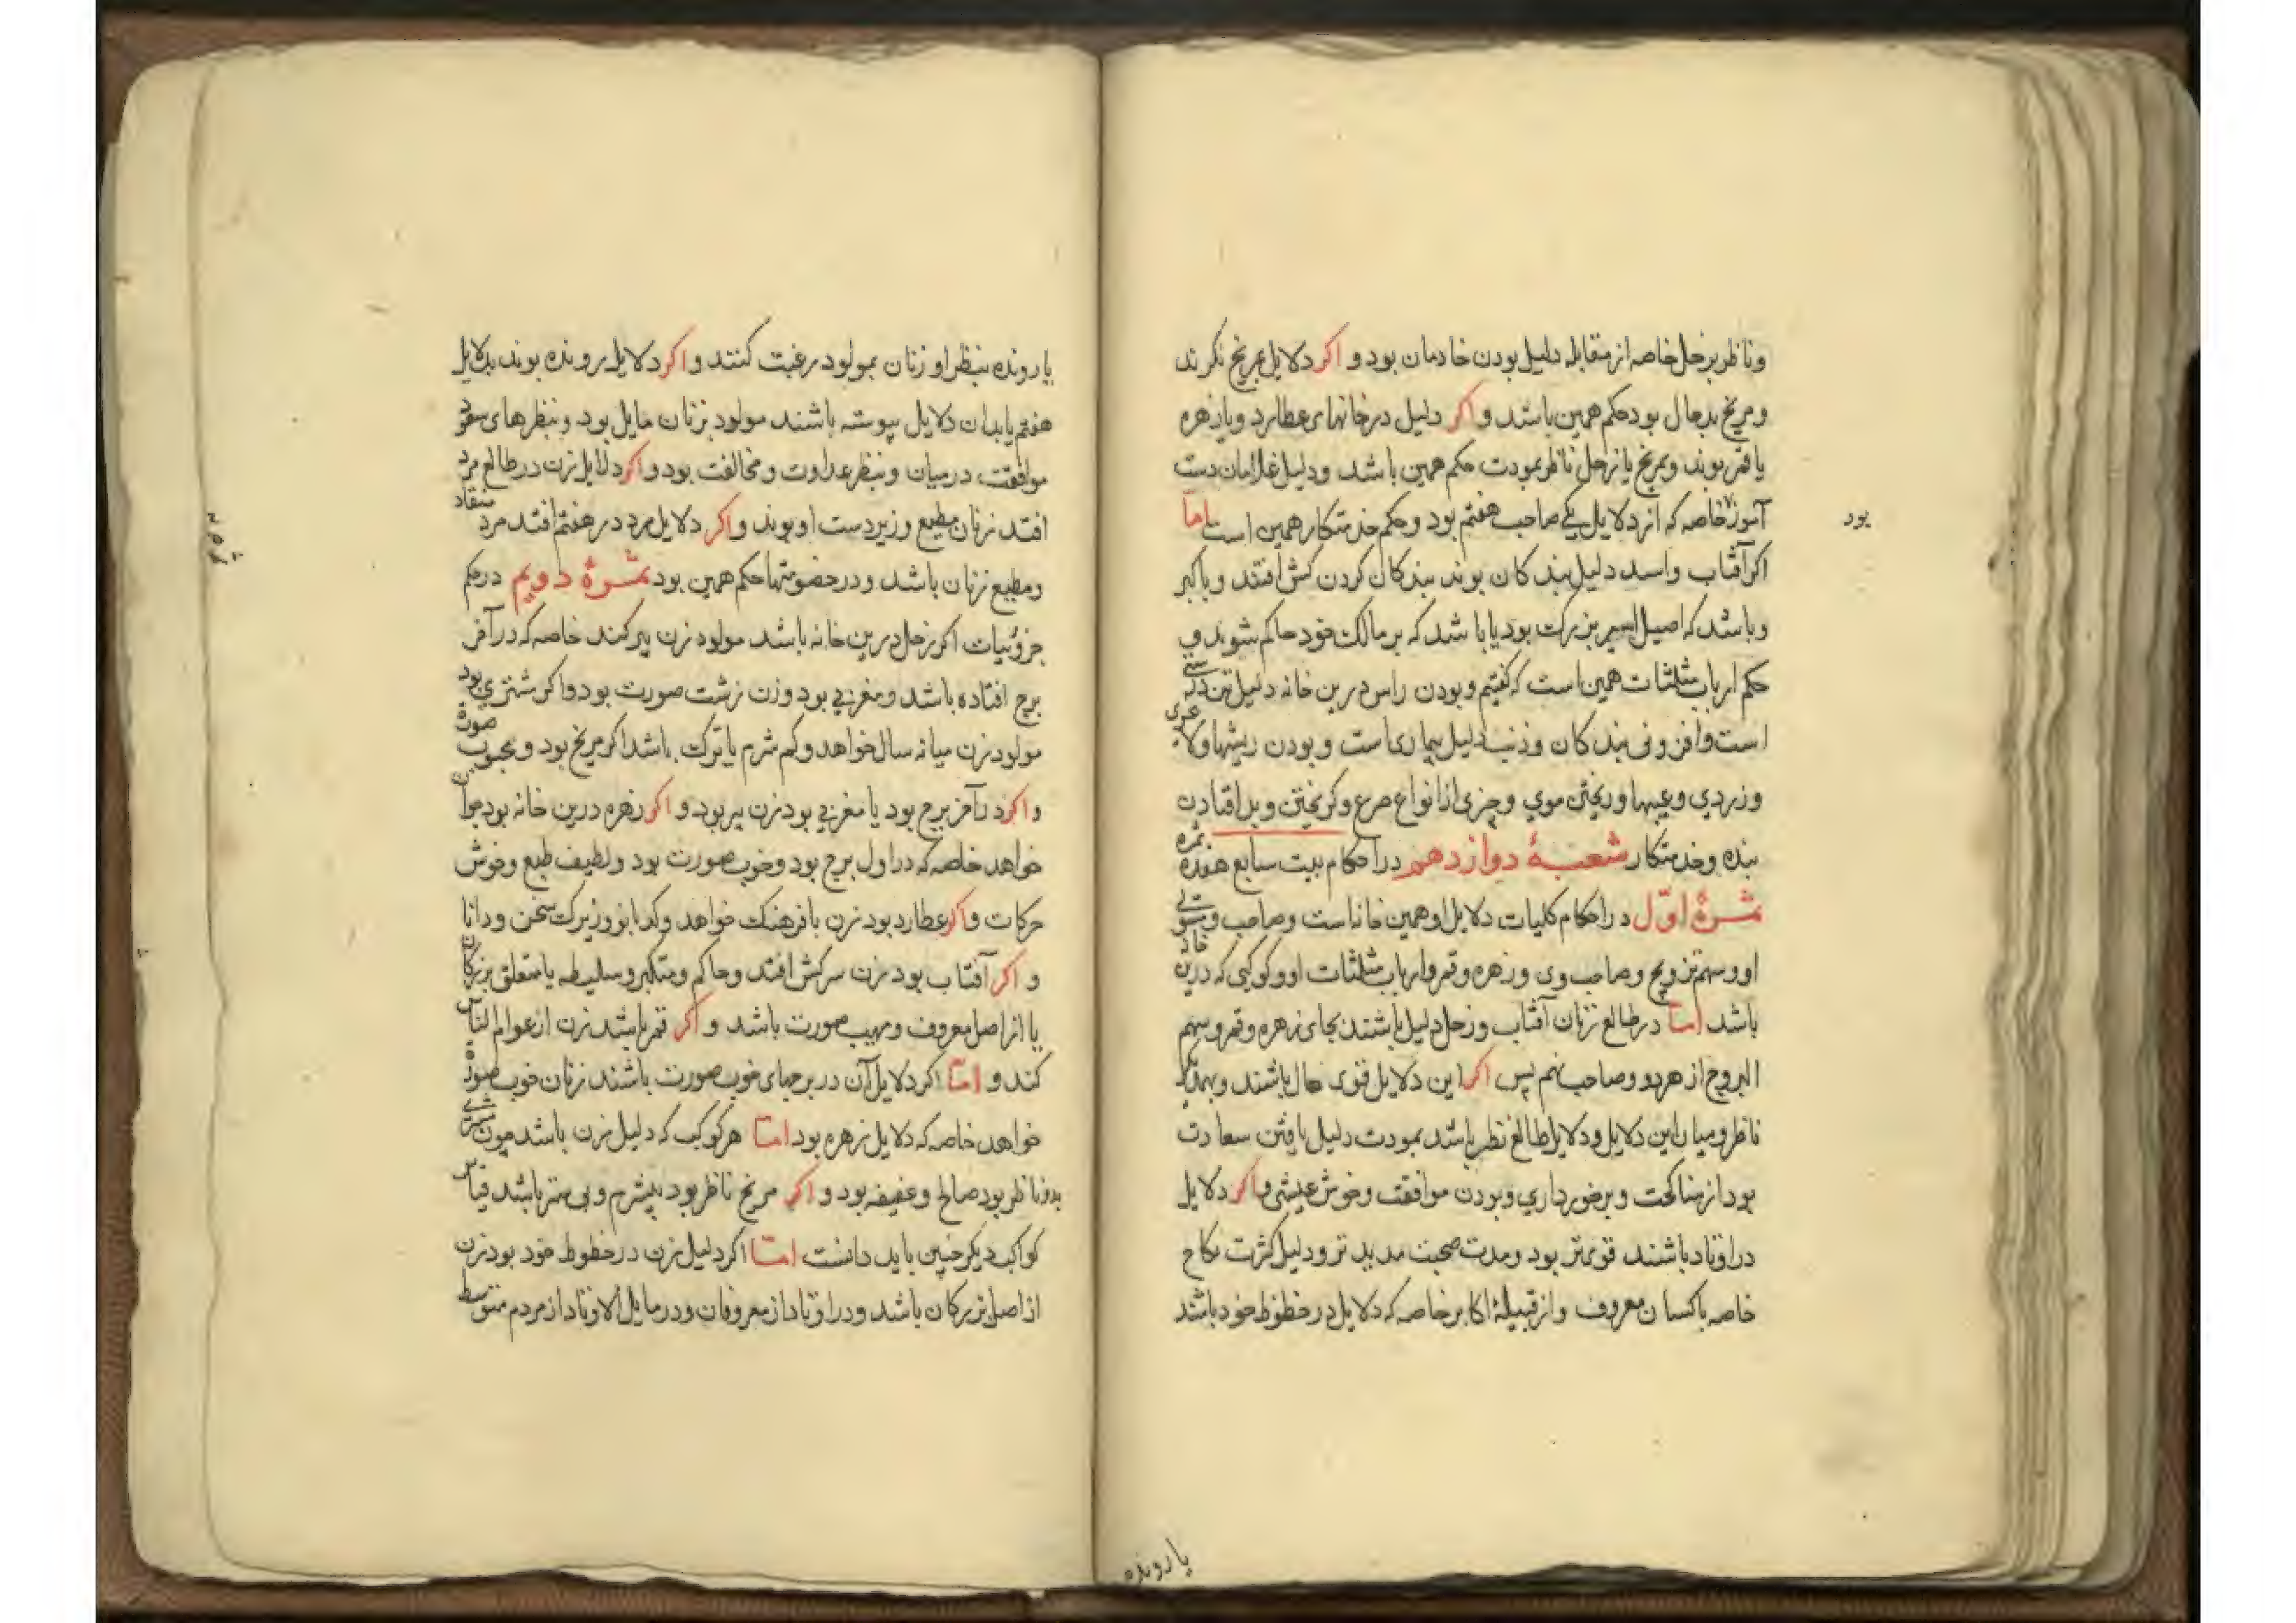 وناظر بزحل خاصه از مقابله دلیل بودن خادمان بود و اکر دلایل بمریخ نکرند
و مریخ بدحال بود حکم همین باشد و اکر دلیل در خانهای عطارد و یا زهره
یا قمر بوند و بمریخ یا زحل ناظر بمودت حکم همین باشد و دلیل غلامان دست
آموز خاصه که از دلایل یکی صاحب هفتم بود و حکم خدمتکار همین است اما
بود
اکر آفتاب واسد دلیل بندکان بوند بندکان کردن کش افتند و یا کبر
و باشد که اصیل اسیر بزرکت بود یا باشد که بر مالکت خود حاکم شوند و
حکم ارباب مثلثات همین است که کفتیم و بودن راس درین خانه دلیل تن درستی
است و افزونی بندکان و ذنب دلیل بیماری است و بودن ریشها و لاغری
و زردی و عیبها و ریختن موی و چیزی از انواع صرع و کریختن و بد افتادن
بنده و خدمتکار شعبهٔ دوازدهم در احکام بیت سابع هفده ثمره
ثمرهٔ اوّل در احکام کلیات دلایل او همین خانه است و صاحب و مستولی
او و سهم تزویج و صاحب وی و زهره و قمر و ارباب مثلثات او و کوکبی که درین خانه
باشد امّا در طالع زنان آفتاب و زحل دلیل باشند بجای زهره و قمر و سهم
البروج از هر دو و صاحب نهم پس اکر این دلایل قوی حال باشند و بهمدیکر
ناظر و میان این دلایل و دلایل طالع نظر باشد بمودت دلیل یافتن سعادت
بود از مناکحت و برخورداری و بودن موافقت و خوش عیشی و اکر دلایل
در اوتاد باشند قوی‌تر بود و مدت صحبت مدید تر و دلیل کثرت نکاح
خاصه با کسان معروف و از قبیلهٔ اکابر خاصه که دلایل در حظوظ خود باشند
یا رونده
یا رونده بنظر او زنان بمولود رغبت کنند و اکر دلایل رونده بوند بدلایل
هفتم یا بدان دلایل پیوسته باشند مولود بزنان مایل بود و بنظرهای سعود
موافقت در میان و بنظر عداوت و مخالفت بود و اکر دلایل زن در طالع مرد
افتد زنان مطیع و زیردست او بوند و اکر دلایل مرد در هفتم افتد مرد منقاد
و مطیع زنان باشد و در خصومتها حکم همین بود ثمرهٔ دویم در حکم
جزوئیات اکر زحل درین خانه باشد مولود زن پیر کند خاصه که در آخر
برج افتاده باشد و مغربی بود و زن زشت صورت بود و اکر مشتری بود
مولود زن میانه سال خواهد و کم شرم یا ترکت باشد اکر مریخ بود و محبوب صورة
و اکر در آخر برج بود یا مغربی بود زن پیر بود و اکر زهره درین خانه بود جوان
خواهد خاصه که در اول برج بود و خوب صورت بود و لطیف طبع و خوش
حرکات و اکر عطارد بود زن با فرهنکت خواهد و کدبانو و زیرکت سخن و دانا
و اکر آفتاب بود زن سرکش افتد و حاکم و متکبر و سلیطه یا متعلق بزرکان
یا از اصل معروف و مهیب صورت باشد و اکر قمر باشد زن از عوام الناس
کند و امّا اکر دلایل آن در برجهای خوب صورت باشند زنان خوب صورة
خواهد خاصه که دلایل زهره بود امّا هر کوکب که دلیل زن باشد چون مشتری
بدو ناظر بود صالح و عفیفه بود و اکر مریخ ناظر بود بیشرم و بی ستر باشد قیاس
کواکب دیکر چنین باید دانست امّا اکر دلیل زن در حظوظ خود بود زن
از اصل بزرکان باشد و در اوتاد از معروفان و در مایل الاوتاد از مردم متوسط